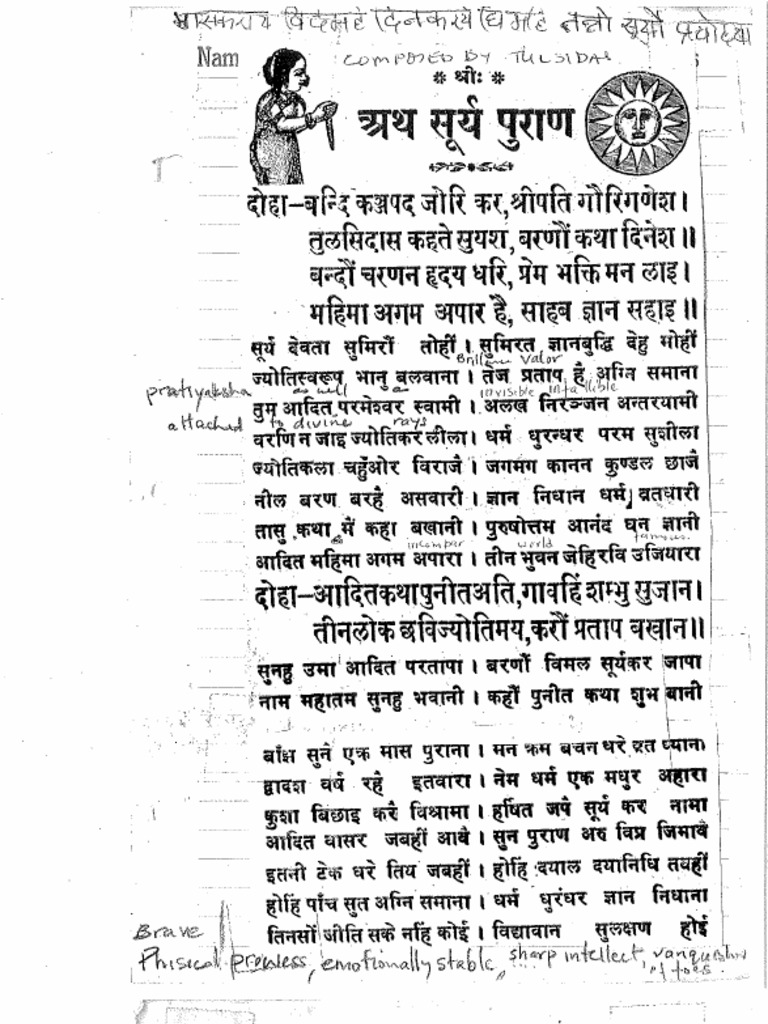 भास्कराय विदमहे दिनकराय धिमहि तन्नो सूर्यो प्रचोदया
Nam
COMPOSED BY TULSIDAS
* श्रीः *
अथ सूर्य पुराण
दोहा–बन्दि कञ्जपद जोरि कर, श्रीपति गौरिगणेश।
तुलसिदास कहते सुयश, बरणौं कथा दिनेश॥
बन्दौं चरणन हृदय धरि, प्रेम भक्ति मन लाइ।
महिमा अगम अपार है, साहब ज्ञान सहाइ॥
सूर्य देवता सुमिरौं तोहीं। सुमिरत ज्ञानबुद्धि देहु मोहीं
valor
ज्योतिस्वरूप भानु बलवाना। तेज प्रताप है अग्नि समाना
pratiyaksha as well as invisible infallible
तुम आदित परमेश्वर स्वामी। अलख निरञ्जन अन्तरयामी
attached to divine rays
वरणि न जाइ ज्योतिकर लीला। धर्म धुरन्धर परम सुशीला
ज्योतिकला चहुँओर विराजै। जगमग कानन कुण्डल छाजै
नील बरण बरहै असवारी। ज्ञान निधान धर्म व्रतधारी
तासु कथा मैं कहा बखानी। पुरुषोत्तम आनंद घन ज्ञानी
world famous
आदित महिमा अगम अपारा। तीन भुवन जेहिरवि उजियारा
दोहा–आदितकथापुनीतअति, गावहिं शम्भु सुजान।
तीनलोक छविज्योतिमय, करौं प्रताप बखान॥
सुनहु उमा आदित परतापा। बरणौं विमल सूर्यकर जापा
नाम महातम सुनहु भवानी। कहौं पुनीत कथा शुभ बानी
बाँझ सुनै एक मास पुराना। मन क्रम बचन धरे व्रत ध्याना
द्वादश वर्ष रहै इतवारा। नेम धर्म एक मधुर अहारा
कुशा बिछाइ करै विश्रामा। हर्षित जपै सूर्य कर नामा
आदित वासर जबहीं आवै। सुन पुराण अरु विप्र जिमावै
इतनी टेक धरे तिय जबहीं। होहिं दयाल दयानिधि तबहीं
होहिं पाँच सुत अग्नि समाना। धर्म धुरंधर ज्ञान निधाना
तिनसों जीति सके नहिं कोई। विद्यावान सुलक्षण होई
Brave
Phisical prowless, emotionally stable, sharp intellect, vanquisher
of foes.